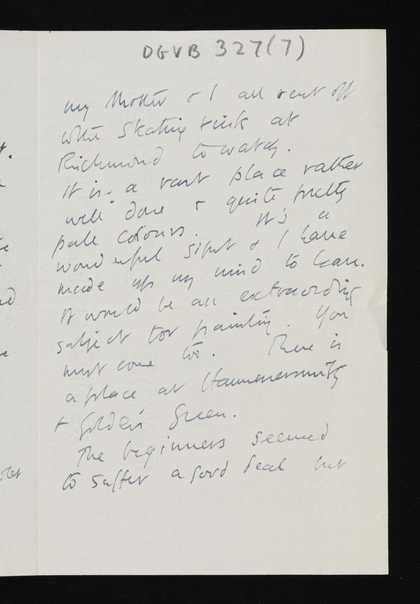 DGVB 327(7)
my Mother & I all went off
to the Skating rink at
Richmond to watch.
It is a vast place rather
well done & quite pretty
pale colours. It's a
wonderful sight & I have
made up my mind to learn.
It would be an extraordinary
subject for painting. You
must come to. There is
a place at Hammersmith
& Golders Green.
The beginners seemed
to suffer a good deal but